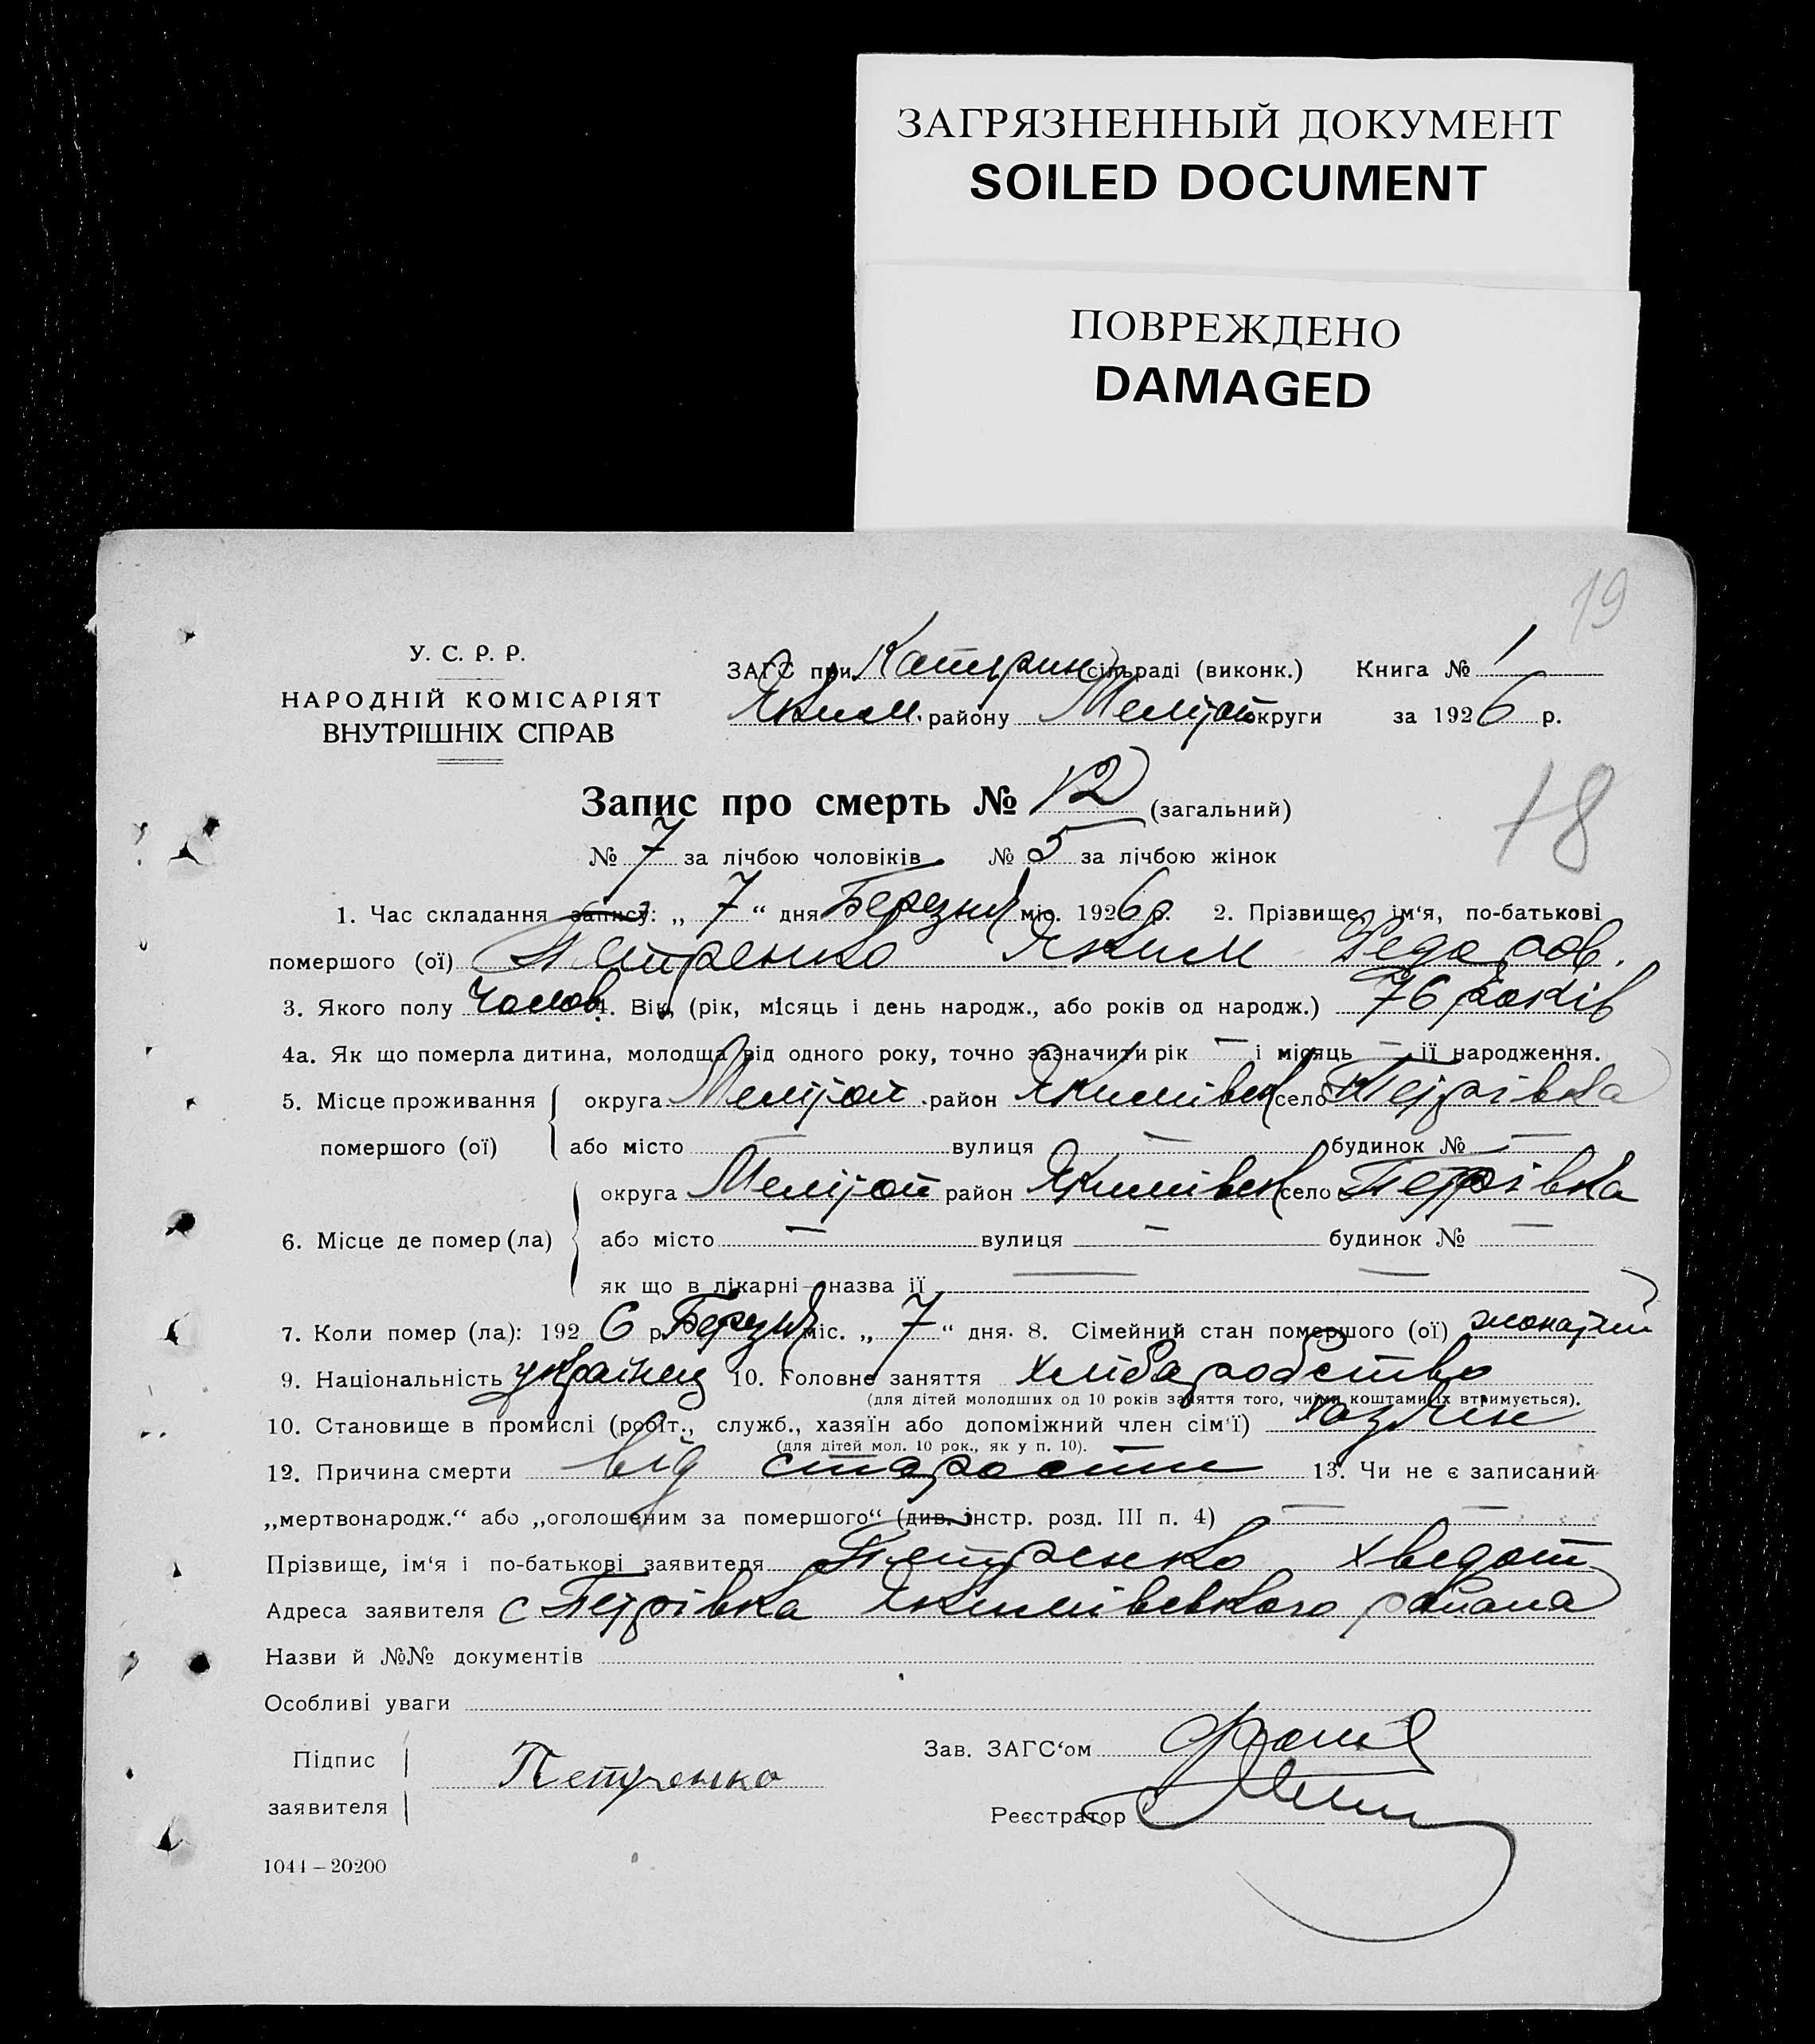 ЗАГРЯЗНЕННЫЙ ДОКУМЕНТ
SOILED DOCUMENT
ПОВРЕЖДЕНО
DAMAGED
19
У. С. Р. Р.
НАРОДНІЙ КОМІСАРІЯТ
ВНУТРІШНІХ СПРАВ
ЗАГС при Катерин сільраді (виконк.) Книга № 1
Яким. району Меліт округи за 1926 р.
Запис про смерть № 12 (загальний)
18
№ 7 за лічбою чоловіків № 5 за лічбою жінок
1. Час складання запису: „ 7 “ дня Березня міс. 1926 р. 2. Прізвище, ім‘я, по-батькові
помершого (ої) Петренко Яким Федоров.
3. Якого полу Чолов. 4. Вік, (рік, місяць і день народж., або років од народж.) 76 років
4а. Як що померла дитина, молодща від одного року, точно зазначити рік — і місяць — її народження.
5. Місце проживання округа район Якимівськ село Петрівка
помершого (ої) або місто — вулиця — будинок № —
округа район Якимівськ село Петрівка
6. Місце де помер (ла) або місто — вулиця — будинок № —
як що в лікарні—назва її —
7. Коли помер (ла): 1926 р. Березня міс. „ 7 “ дня. 8. Сімейний стан помершого (ої) жонатий
9. Національність українец 10. Головне заняття хлібаробство
(для дітей молодших од 10 років заняття того, чиїми коштами їх втримується).
10. Становище в промислі (робіт., служб., хазяїн або допоміжний член сім‘ї) хазяїн
(для дітей мол. 10 рок., як у п. 10).
12. Причина смерти від старости 13. Чи не є записаний
„мертвонародж.“ або „оголошеним за помершого“ (див. інстр. розд. III п. 4) —
Прізвище, ім‘я і по-батькові заявителя Петренко Хведот
Адреса заявителя с Петрівка Якимівського района
Назви й №№ документів
Особливі уваги
Підпис
заявителя Петренко
Зав. ЗАГС‘ом
Реєстратор
1044 – 20200